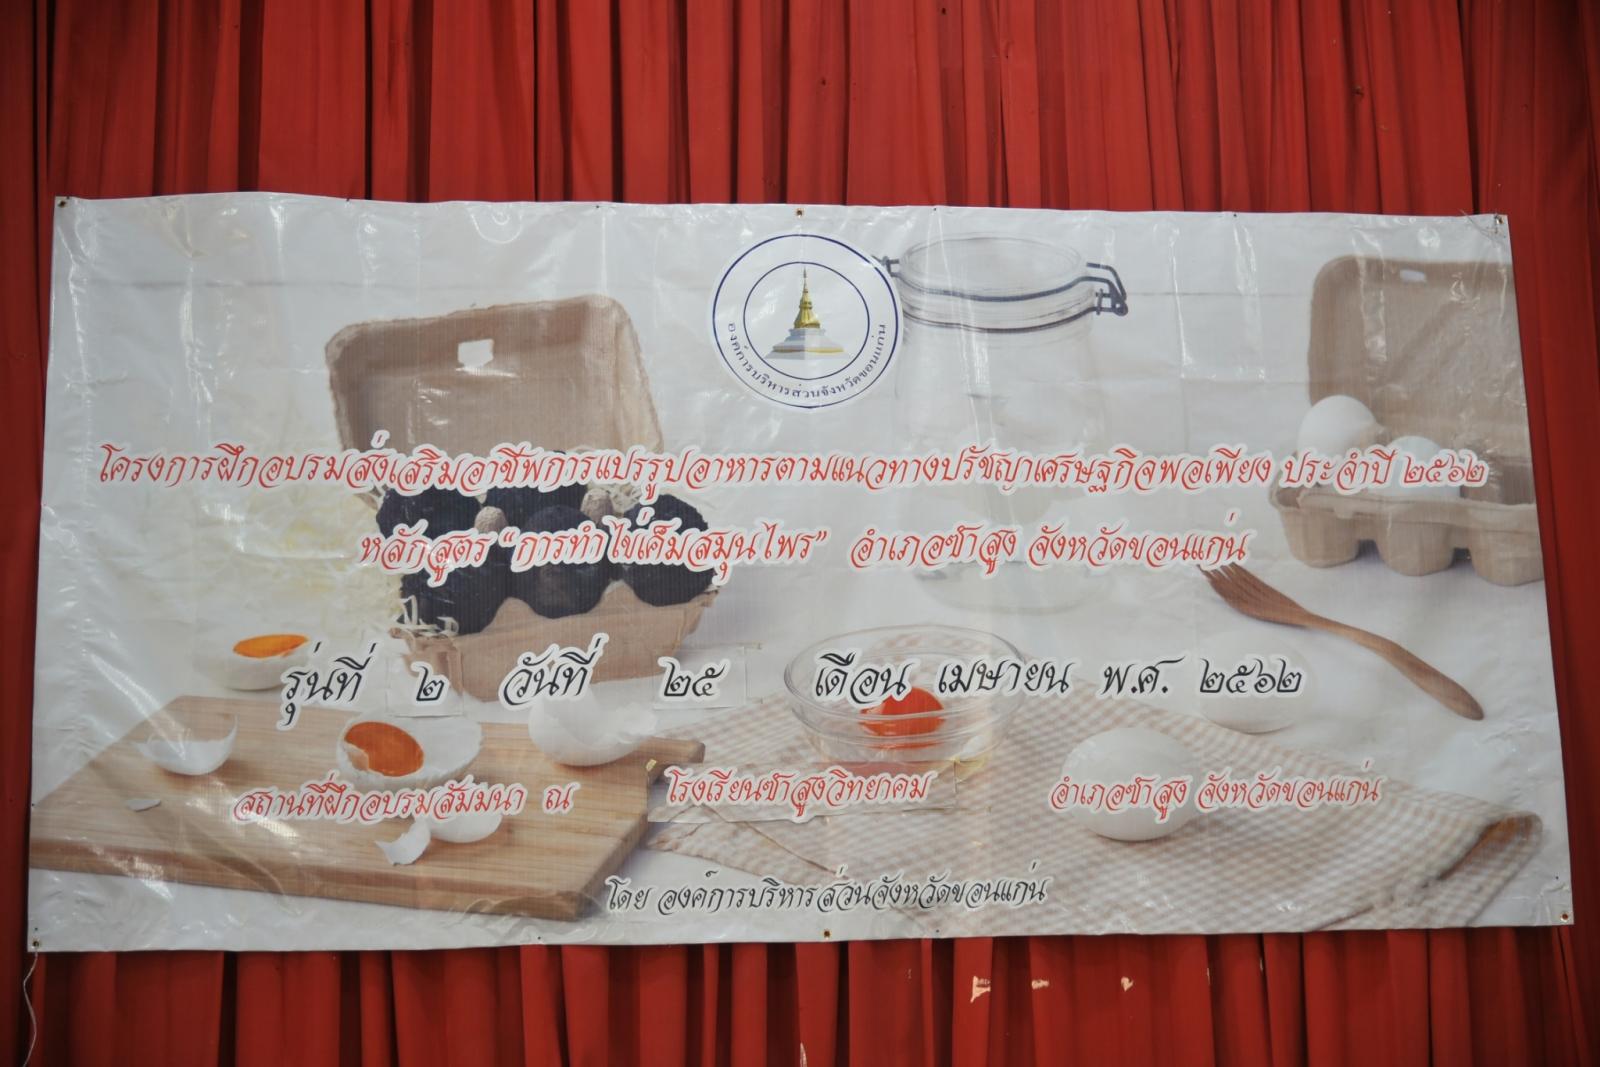 องค์การบริหารส่วนจังหวัดขอนแก่น
โครงการฝึกอบรมส่งเสริมอาชีพการแปรรูปอาหารตามแนวทางปรัชญาเศรษฐกิจพอเพียง ประจำปี ๒๕๖๒
หลักสูตร “การทำไข่เค็มสมุนไพร” อำเภอซำสูง จังหวัดขอนแก่น
รุ่นที่ ๒ วันที่ ๒๕ เดือน เมษายน พ.ศ. ๒๕๖๒
สถานที่ฝึกอบรมสัมมนา ณ โรงเรียนซำสูงวิทยาคม อำเภอซำสูง จังหวัดขอนแก่น
โดย องค์การบริหารส่วนจังหวัดขอนแก่น